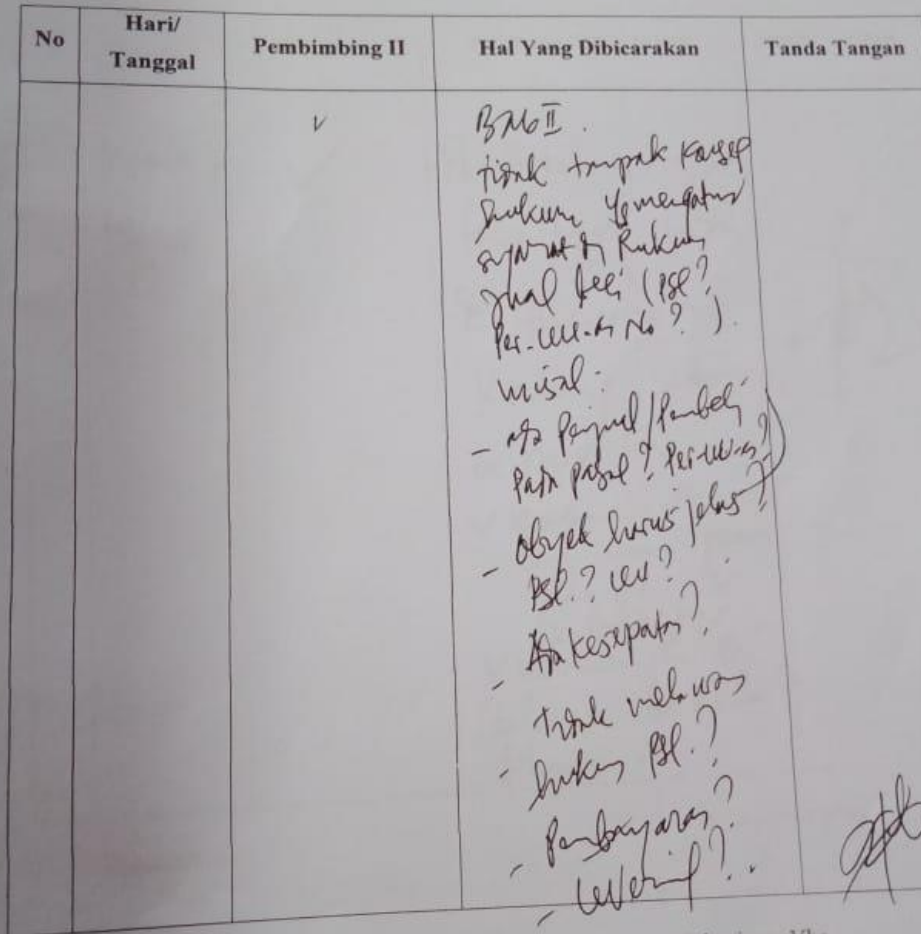 No
Hari/
Tanggal
Pembimbing II
Hal Yang Dibicarakan
Tanda Tangan
v
BAb II.
tidak tampak konsep
hukum yg mengatur
syarat & Rukun
jual beli (psl?
Per-UU-an No ? ).
misal :
- ada Penjual/Pembeli
pada pasal? Per-UU-an?
- obyek harus jelas?
psl.? UU?
- Ada kesepakatan?
tidak melawan
- hukum psl.?
- Pembayaran?
- Levering?.